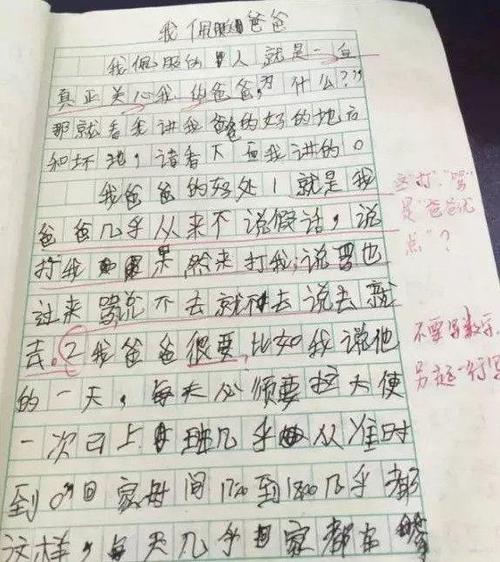 我佩服爸爸
我佩服的人就是一直
真正关心我的爸爸,为什么??
那就看我讲我爸的好的地方
和坏地,请看下面我讲的。
我爸爸的好处1就是我
爸爸几乎从来不说假话,说
打我果然来打我,说骂也
过来骂说不去就不去说去就
去。2我爸爸很要,比如我说他
的一天,每天必须要这天使
一次马上班几乎从准时
到0回家时间1720到1800几乎都
这样,每天几乎回家都在
这"打""骂"
是"爸爸优
点"?
不要写数字
另起一行写